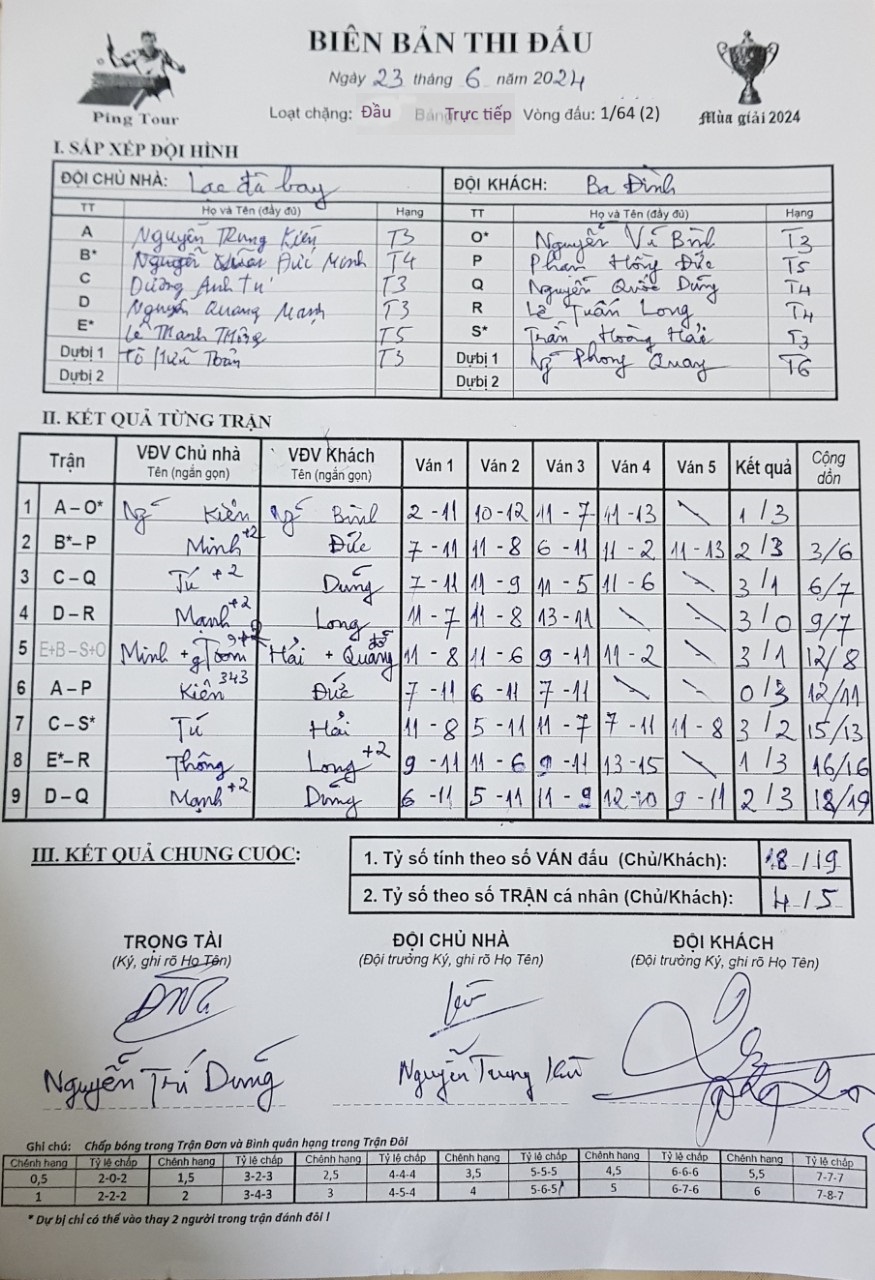 BIÊN BẢN THI ĐẤU
Ngày 23 tháng 6 năm 2024
Ping Tour
Loạt chặng: Đầu Bảng Trực tiếp Vòng đấu: 1/64 (2)
Mùa giải 2024
I. SẮP XẾP ĐỘI HÌNH
ĐỘI CHỦ NHÀ: Lạc đà bay ĐỘI KHÁCH: Ba Đình
TT Họ và Tên (đầy đủ) Hạng TT Họ và Tên (đầy đủ) Hạng
A Nguyễn Trung Kiên T3 O* Nguyễn Bình T3
B* Nguyễn Đức Minh T4 P Phan Hồng Đức T5
C Dương Anh Tú T3 Q Nguyễn Quốc Dũng T4
D Nguyễn Quang Mạnh T3 R Lê Tuấn Long T4
E* Lê Thanh Thông T5 S* Trần Hoàng Hải T3
Dự bị 1 Tô Toàn T3 Dự bị 1 Ng Phong Quang T6
Dự bị 2 Dự bị 2
II. KẾT QUẢ TỪNG TRẬN
Trận VĐV Chủ nhà Tên (ngắn gọn) VĐV Khách Tên (ngắn gọn) Ván 1 Ván 2 Ván 3 Ván 4 Ván 5 Kết quả Cộng dồn
1 A – O* Ng Kiên Ng Bình 2 - 11 10 - 12 11 - 7 11 - 13 \ 1 / 3
2 B* – P Minh +2 Đức 7 - 11 11 - 8 6 - 11 11 - 2 11 - 13 2 / 3 3/6
3 C – Q Tú +2 Dũng 7 - 11 11 - 9 11 - 5 11 - 6 \ 3 / 1 6/7
4 D – R Mạnh +2 Long 11 - 7 11 - 8 13 - 11 \ \ 3 / 0 9/7
5 E+B – S+O Minh + Hải + Quang 11 - 8 11 - 6 9 - 11 11 - 2 \ 3 / 1 12/8
6 A – P Kiên 343 Đức 7 - 11 6 - 11 7 - 11 \ \ 0 / 3 12/11
7 C – S* Tú Hải 11 - 8 5 - 11 11 - 7 7 - 11 11 - 8 3 / 2 15/13
8 E* – R Thông Long +2 9 - 11 11 - 6 9 - 11 13 - 15 \ 1 / 3 16/16
9 D – Q Mạnh +2 Dũng 6 - 11 5 - 11 11 - 9 12 - 10 9 - 11 2 / 3 18/19
III. KẾT QUẢ CHUNG CUỘC:
1. Tỷ số tính theo số VÁN đấu (Chủ/Khách): 18 / 19
2. Tỷ số theo số TRẬN cá nhân (Chủ/Khách): 4 / 5
TRỌNG TÀI ĐỘI CHỦ NHÀ ĐỘI KHÁCH
(Ký, ghi rõ Họ Tên) (Đội trưởng Ký, ghi rõ Họ Tên) (Đội trưởng Ký, ghi rõ Họ Tên)
Nguyễn Trí Dũng Nguyễn Trung
Ghi chú: Chấp bóng trong Trận Đơn và Bình quân hạng trong Trận Đôi
Chênh hạng Tỷ lệ chấp Chênh hạng Tỷ lệ chấp Chênh hạng Tỷ lệ chấp Chênh hạng Tỷ lệ chấp Chênh hạng Tỷ lệ chấp Chênh hạng Tỷ lệ chấp
0,5 2-0-2 1,5 3-2-3 2,5 4-4-4 3,5 5-5-5 4,5 6-6-6 5,5 7-7-7
1 2-2-2 2 3-4-3 3 4-5-4 4 5-6-5 5 6-7-6 6 7-8-7
* Dự bị chỉ có thể vào thay 2 người trong trận đánh đôi !